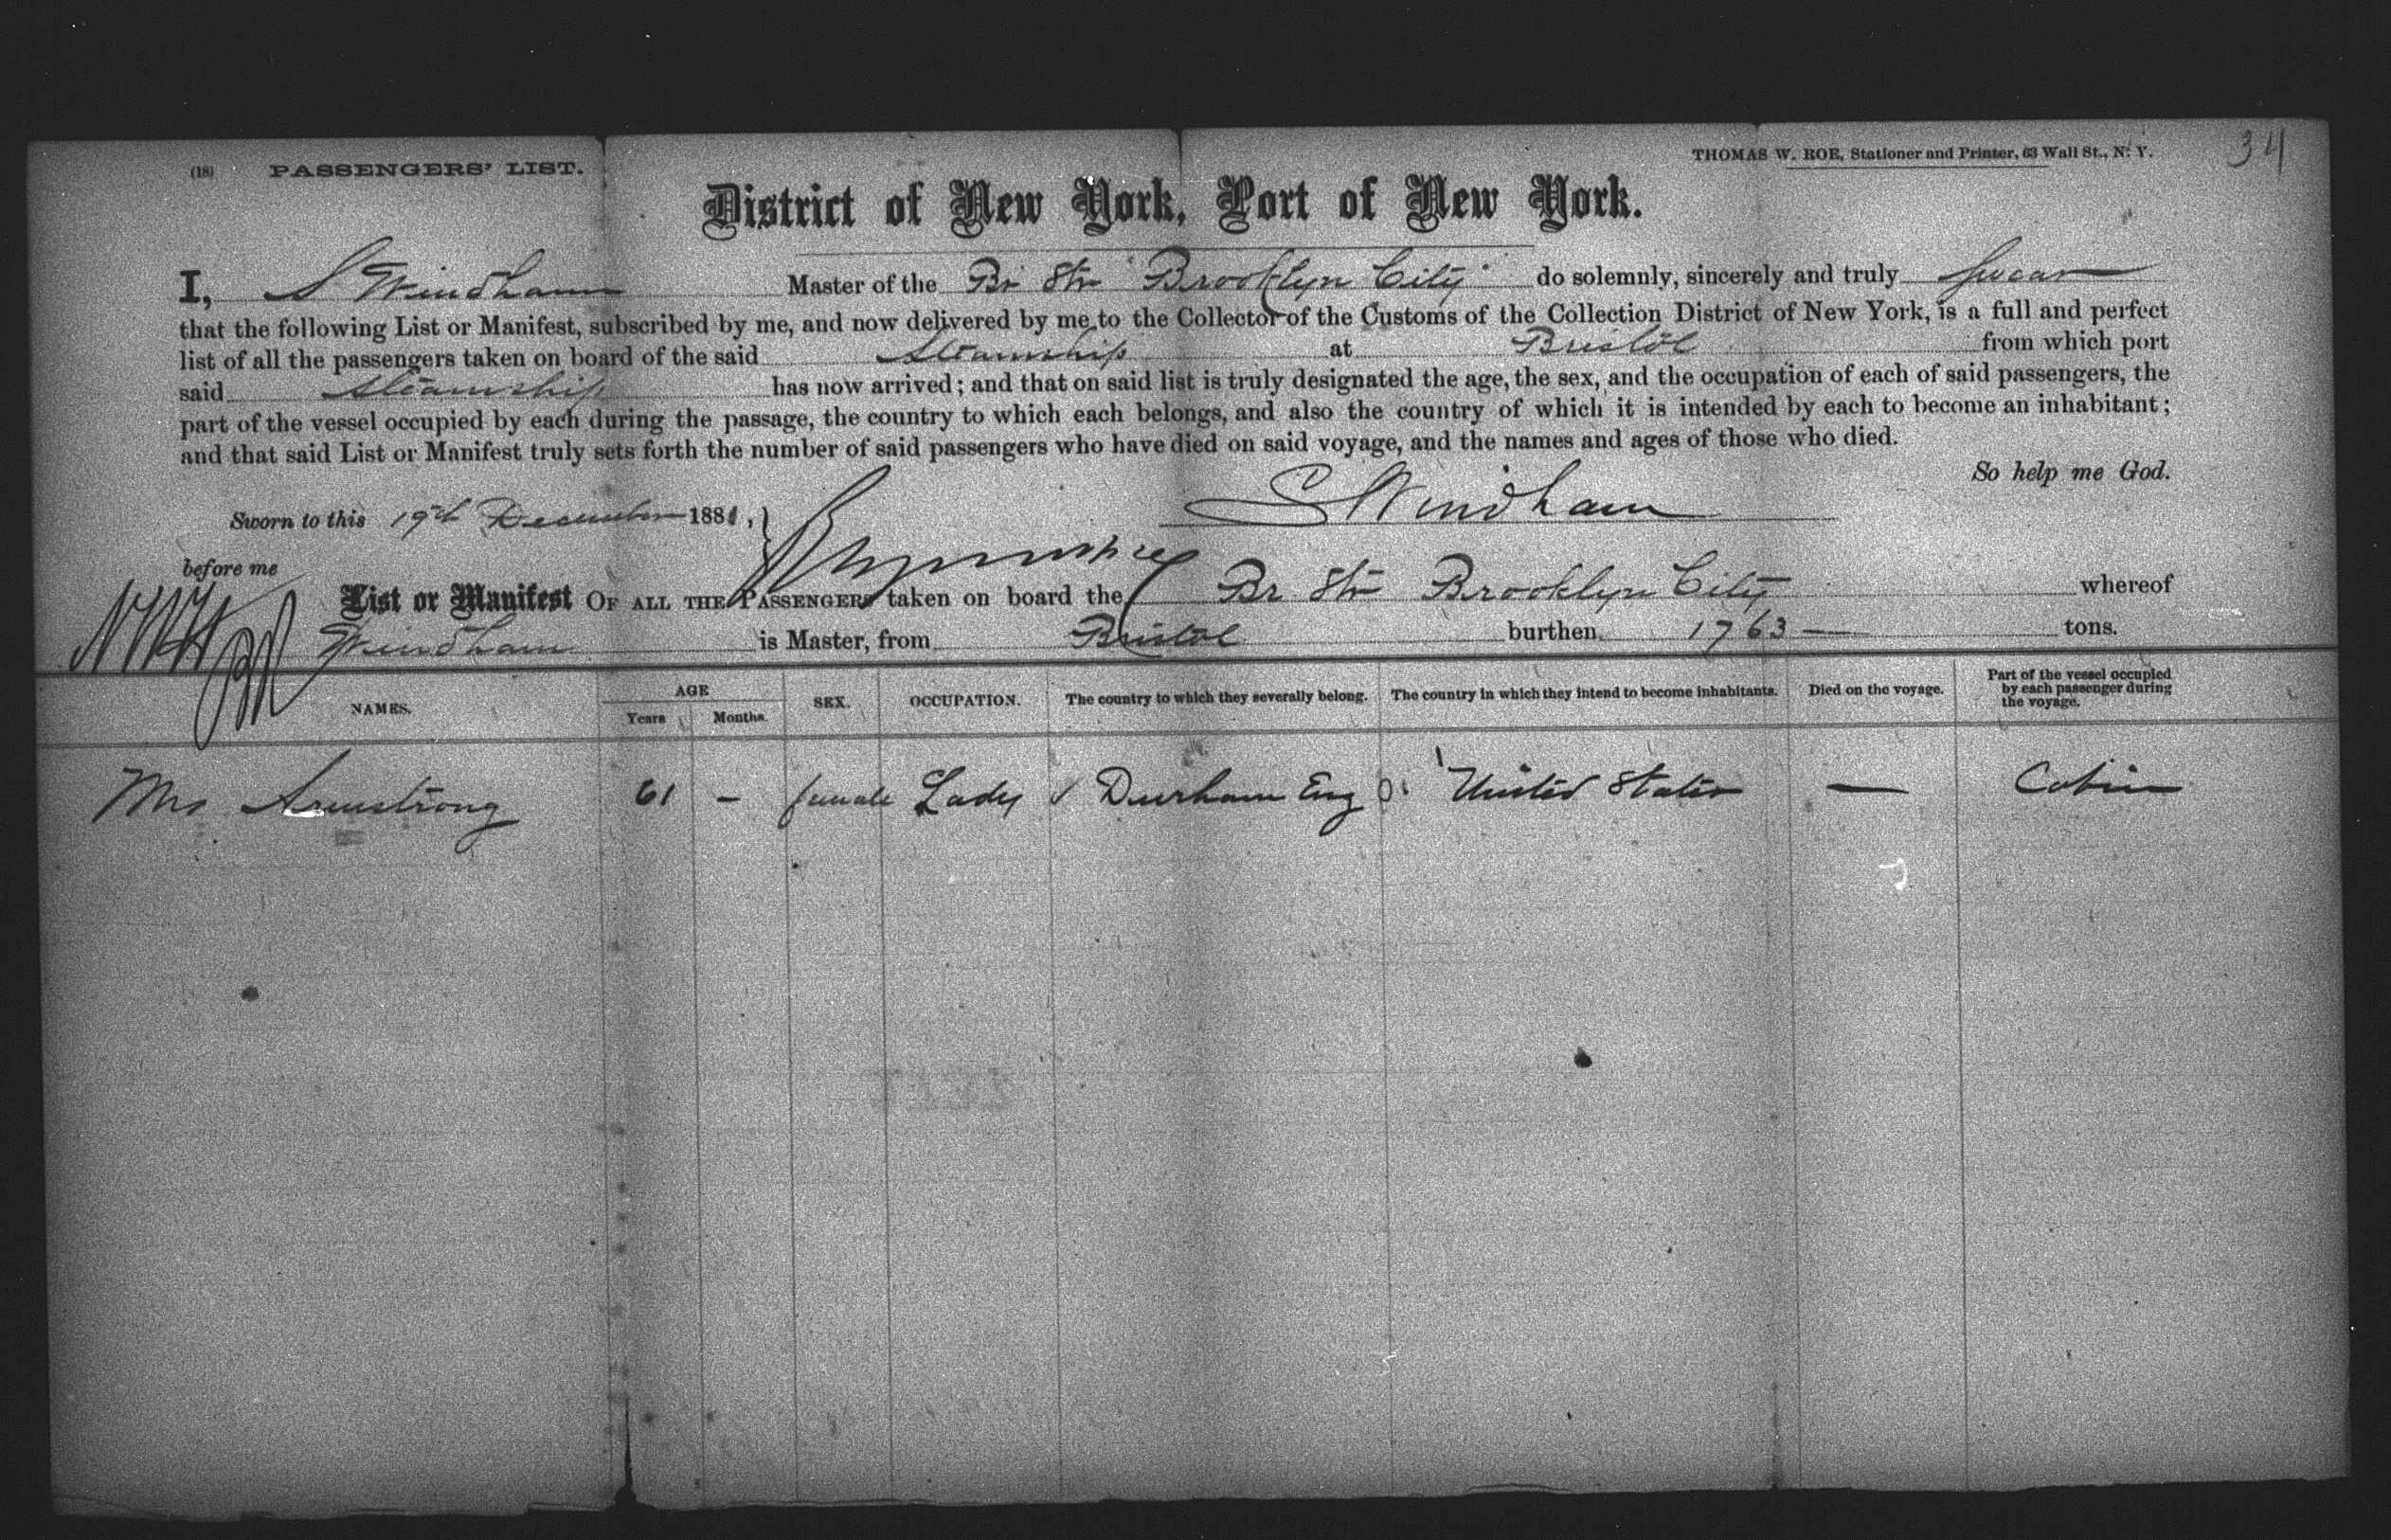 (18) PASSENGERS' LIST.
THOMAS W. ROE, Stationer and Printer, 63 Wall St., N. Y.
34
District of New York, Port of New York.
I, S Windham Master of the Br Str "Brooklyn City" do solemnly, sincerely and truly swear
that the following List or Manifest, subscribed by me, and now delivered by me to the Collector of the Customs of the Collection District of New York, is a full and perfect
list of all the passengers taken on board of the said Steamship at Bristol from which port
said Steamship has now arrived; and that on said list is truly designated the age, the sex, and the occupation of each of said passengers, the
part of the vessel occupied by each during the passage, the country to which each belongs, and also the country of which it is intended by each to become an inhabitant;
and that said List or Manifest truly sets forth the number of said passengers who have died on said voyage, and the names and ages of those who died.
So help me God.
Sworn to this 19th December 1881,
S Windham
before me
List or Manifest OF ALL THE PASSENGERS taken on board the Br Str Brooklyn City whereof
Windham is Master, from Bristol burthen 1763 — tons.
NAMES. AGE Years Months. SEX. OCCUPATION. The country to which they severally belong. The country in which they intend to become inhabitants. Died on the voyage. Part of the vessel occupied by each passenger during the voyage.
Mrs Armstrong 61 — female Lady Durham Eng United States — Cabin